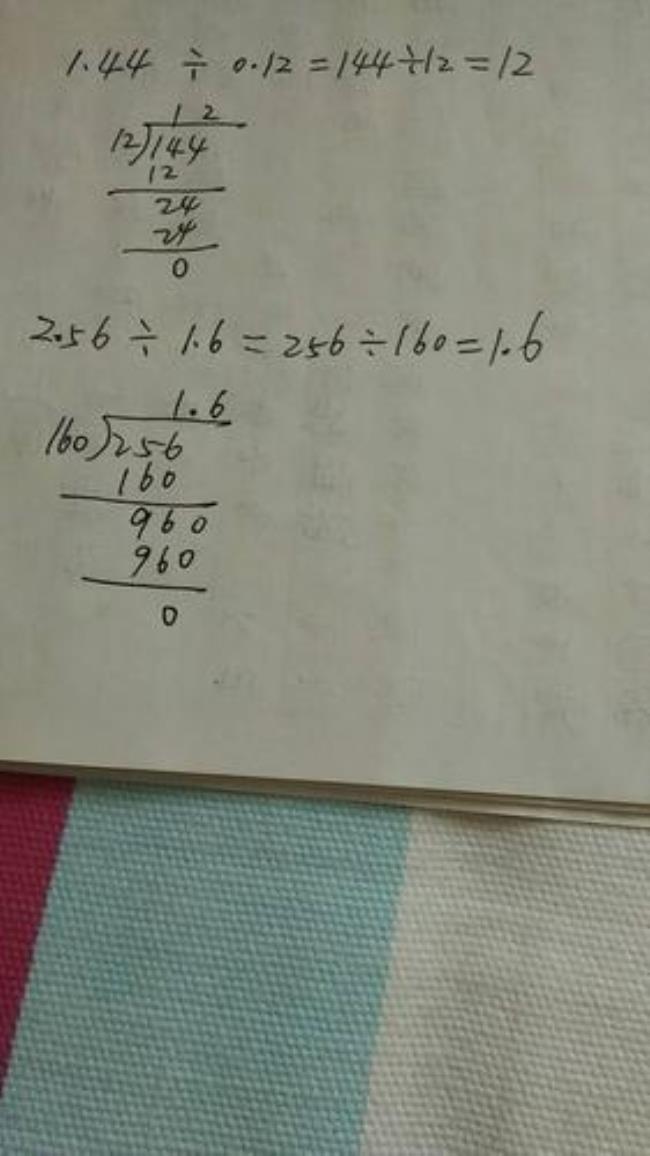 1.44 ÷ 0.12 = 144 ÷ 12 = 12
1 2
12)144
12
24
24
0
2.56 ÷ 1.6 = 256 ÷ 160 = 1.6
1.6
160)256
160
960
960
0